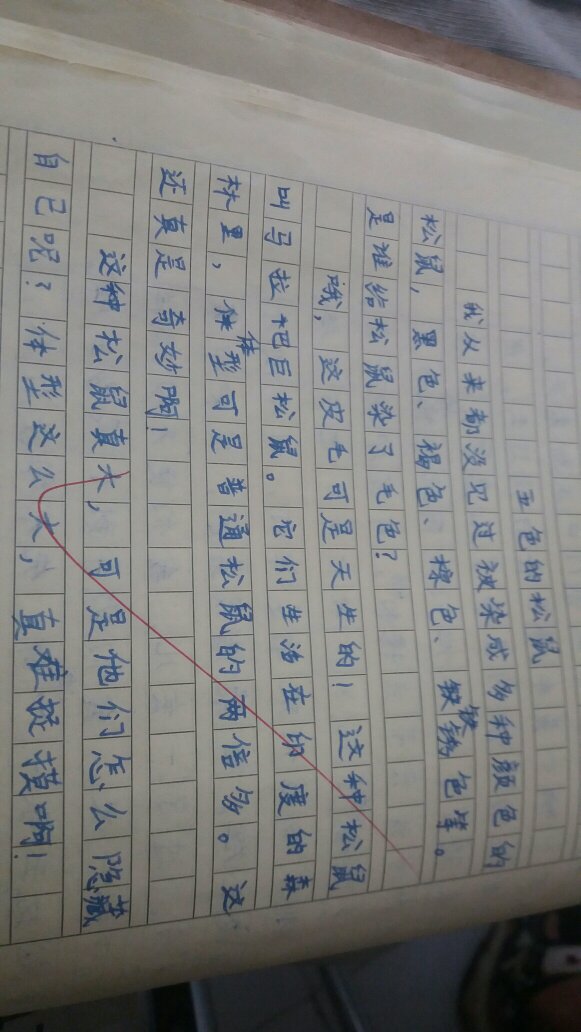 五色的松鼠
我从来都没见过被染成多种颜色的
松鼠,黑色、褐色、棕色、铁锈色等。
是谁给松鼠染了毛色?
哦,这皮毛可是天生的!这种松鼠
叫马拉巴巨松鼠。它们生活在印度的森
林里,体型可是普通松鼠的两倍多。这
还真是奇妙啊!
这种松鼠真大,可是他们怎么隐藏
自己呢?体型这么大,真难捉摸啊!